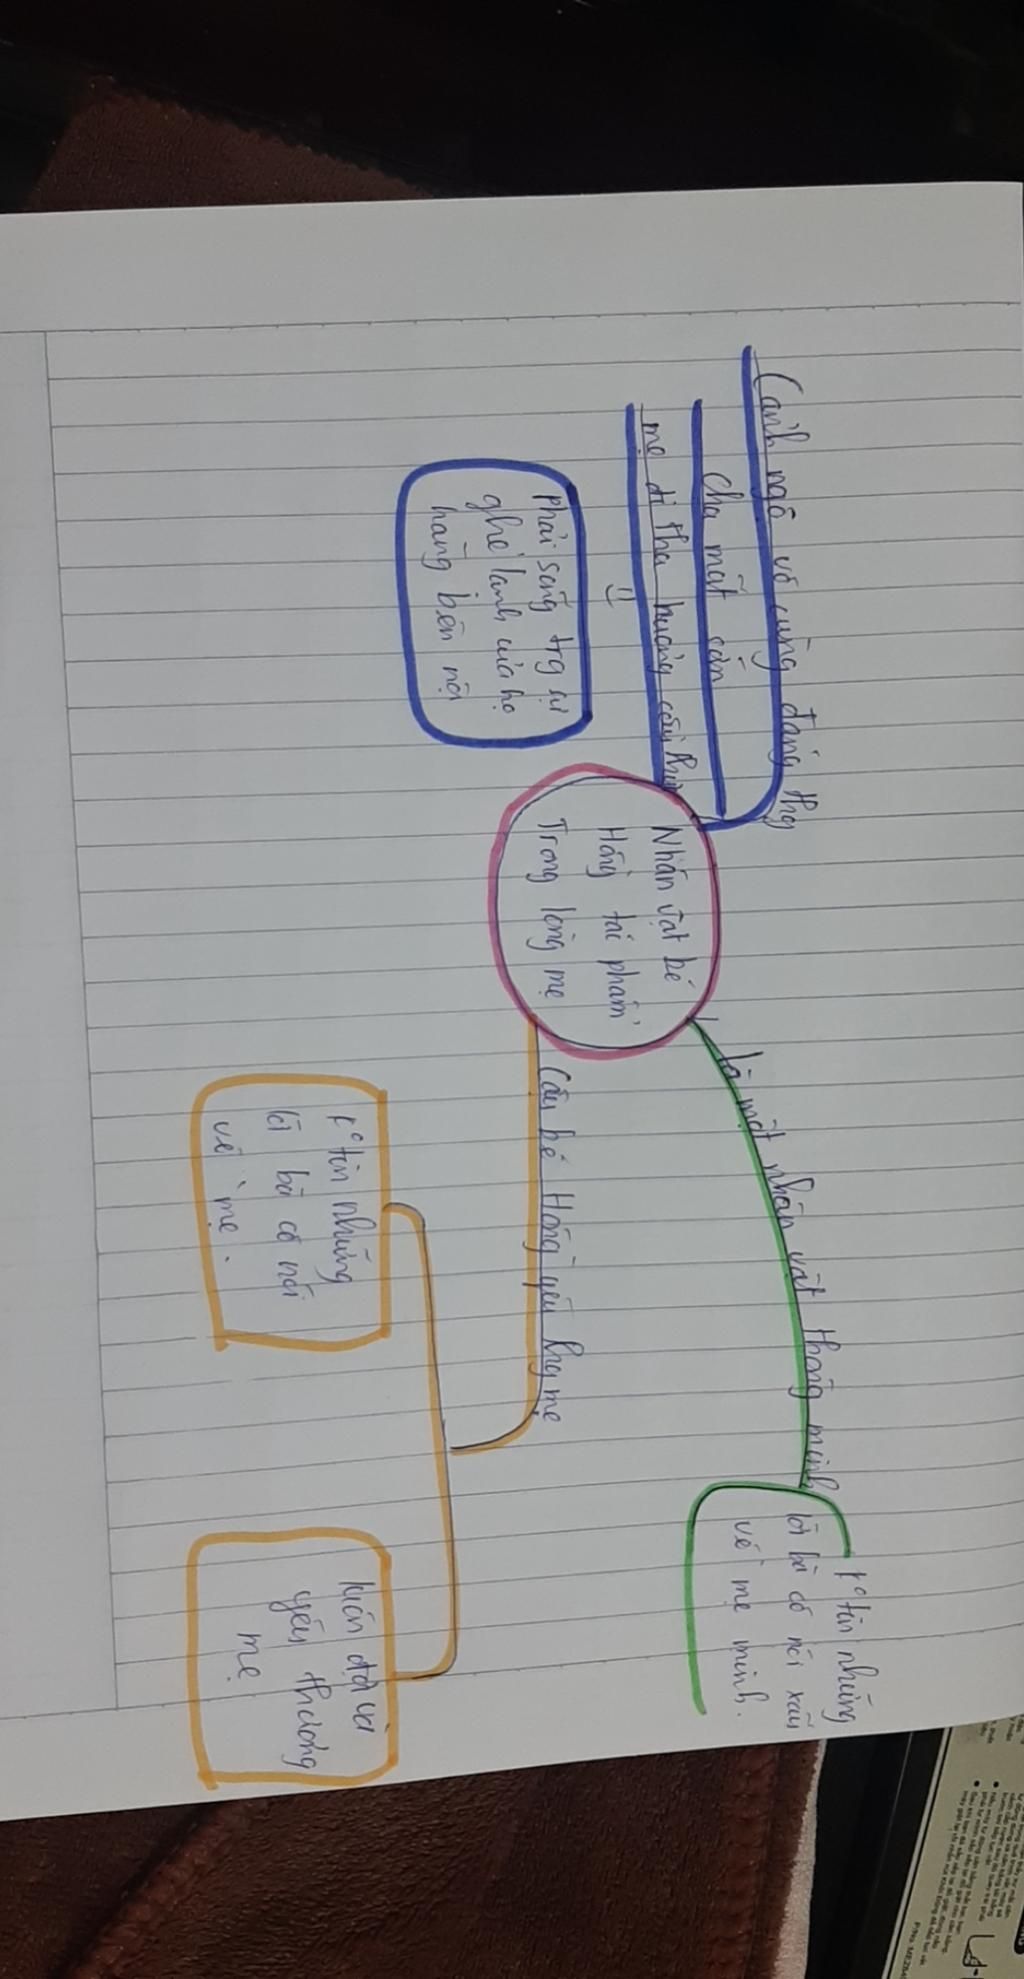 Cảnh ngộ vô cùng đáng thg
cha mất sớm
mẹ đi tha hương cầu thực
phải sống trg sự
ghẻ lạnh của họ
hàng bên nội
Nhân vật bé
Hồng tác phẩm
Trong lòng mẹ
là một nhân vật thông minh
k° tin những
lời bà cô nói xấu
về mẹ mình.
Cậu bé Hồng yêu thg mẹ
k° tin những
lời bà cô nói
về mẹ.
luôn đợi và
yêu thương
mẹ